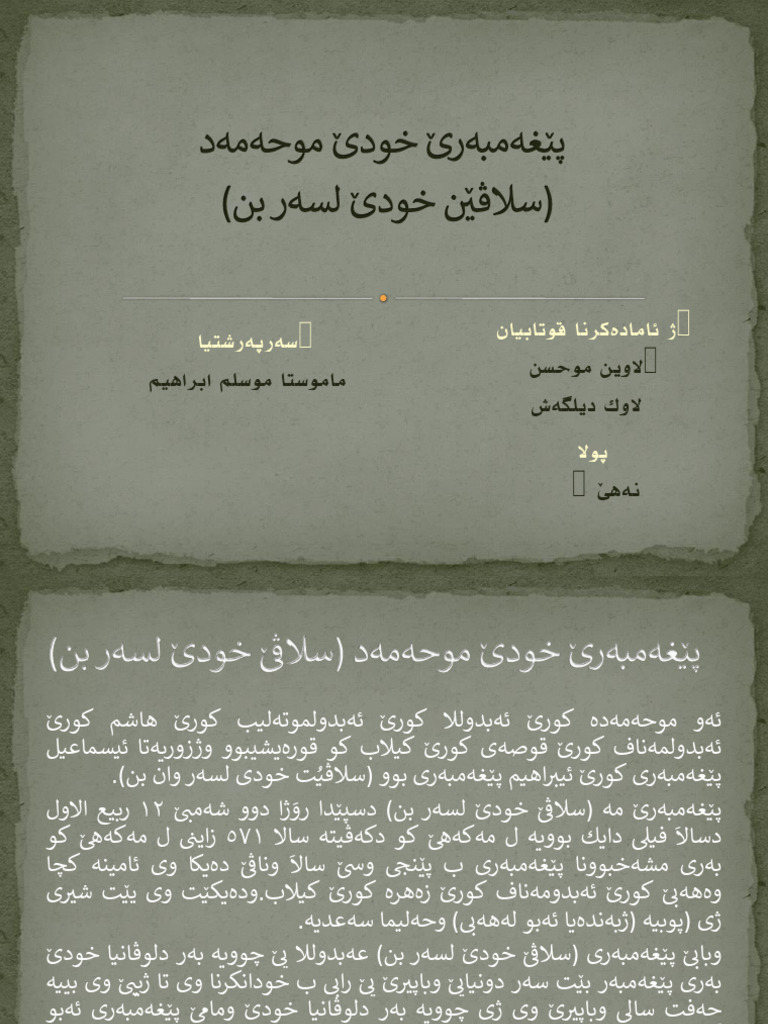 پێغەمبەرێ خودێ موحەمەد
(سلاڤێن خودێ لسەر بن)
ژ ئامادەكرنا قوتابیان
لاوین موحسن
لاوك دیلگەش
پولا
نەهێ
سەرپەرشتیا
ماموستا موسلم ابراهیم
پێغەمبەرێ خودێ موحەمەد (سلاڤێ خودێ لسەر بن)
ئەو موحەمەدە كورێ ئەبدوللا كورێ ئەبدولموتەلیب كورێ هاشم كورێ
ئەبدولمەناف كورێ قوصەی كورێ كیلاب كو قورەیشیبوو وژزوریەتا ئیسماعیل
پێغەمبەری كورێ ئیبراهیم پێغەمبەری بوو (سلاڤێت خودی لسەر وان بن).
پێغەمبەرێ مە (سلاڤێ خودێ لسەر بن) دسپێدا روَژا دوو شەمبێ ١٢ ربیع الاول
دسالاَ فیلی دایك بوویە ل مەكەهێ كو دكەڤیتە سالا ٥٧١ زاینی ل مەكەهێ كو
بەری مشەخبوونا پێغەمبەری ب پێنجی وسێ سالاَ وناڤێ دەیكا وی ئامینە كچا
وەهەبێ كورێ ئەبدومەناف كورێ زەهرە كورێ كیلاب.ودەیكێت وی یێت شیری
ژی (پوبیە (ژبەندەیا ئەبو لەهەبی) وحەلیما سەعدیە.
وبابێ پێغەمبەری (سلاڤێ خودێ لسەر بن) عەبدوللا یێ چوویە بەر دلوڤانیا خودێ
بەری پێغەمبەر بێت سەر دونیایێ وباپیرێ یێ رابی ب خودانكرنا وی تا ژیێ وی بییە
حەفت سالی وباپیرێ وی ژی چوویە بەر دلوڤانیا خودێ ومامێ پێغەمبەری ئەبو